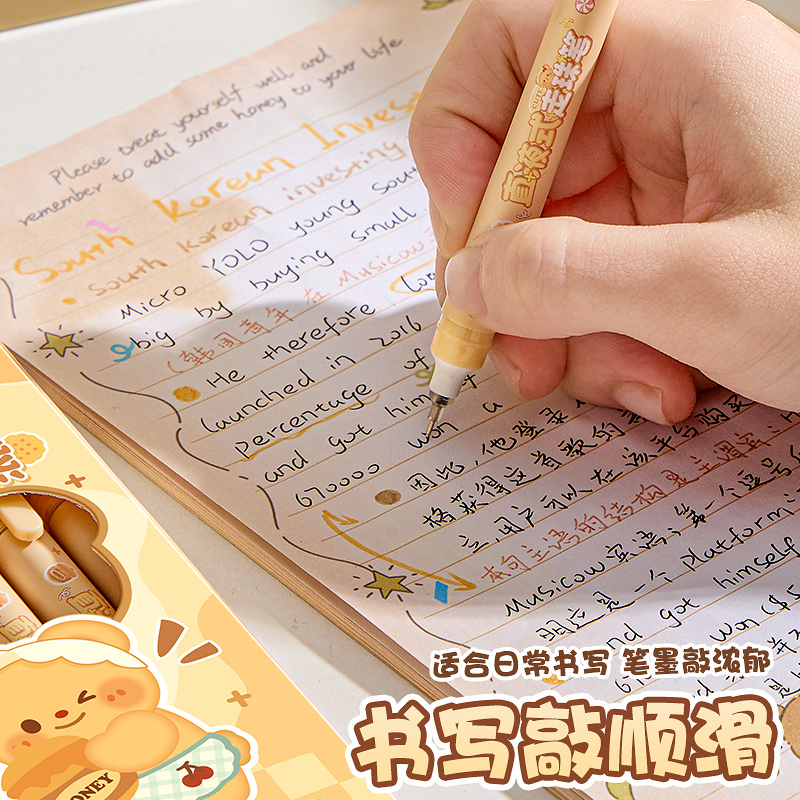 Please treat yourself well and
remember to add some honey to your life
South Korean Invest
South Korean investing
Micro YOLO young Sout
big by buying small
(韩国青年在Musicow
He therefore
launched in 2016
percentage of
and got himself
670000 won a
因比,他登录
格获得这首歌的
立,用户可以在该平台购买
本句主语的结构是主谓宾
Musicow宾语;第一个逗号
明这是一个platform
and got himself
won ($5
直液式走珠笔
熊
HONEY
适合日常书写 笔墨敲浓郁
书写敲顺滑